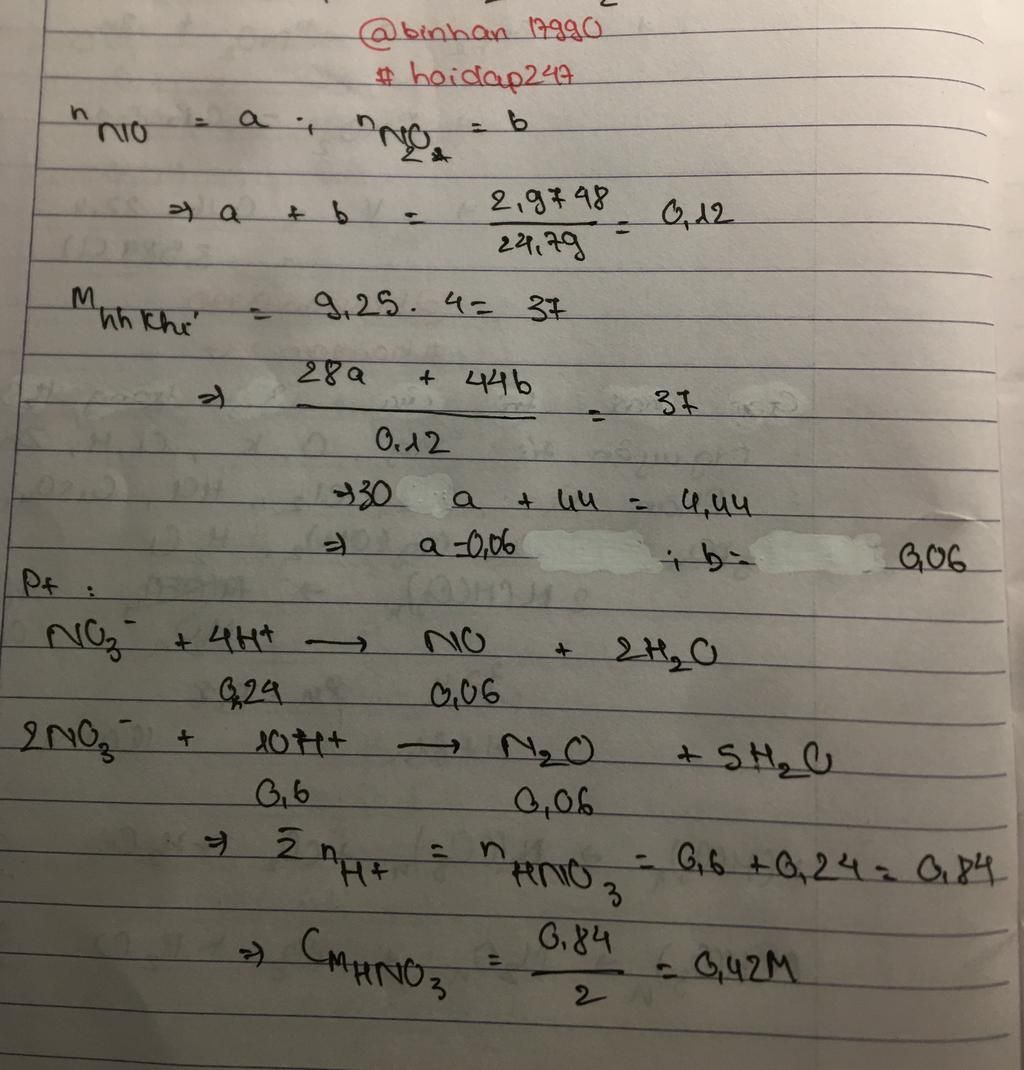 @binhan 17990
# hoidap247
n NO = a ; n N₂O = b
⇒ a + b = 2,9748 / 24,79 = 0,12
M hh khí = 9,25 . 4 = 37
⇒ 28a + 44b / 0,12 = 37
⇒ 30 a + 44 = 4,44
⇒ a = 0,06 ; b = 0,06
Pt :
NO₃⁻ + 4H+ → NO + 2H₂O
0,24 0,06
2NO₃⁻ + 10H+ → N₂O + 5H₂O
0,6 0,06
⇒ Σ n H+ = n HNO₃ = 0,6 + 0,24 = 0,84
⇒ CM HNO₃ = 0,84 / 2 = 0,42M